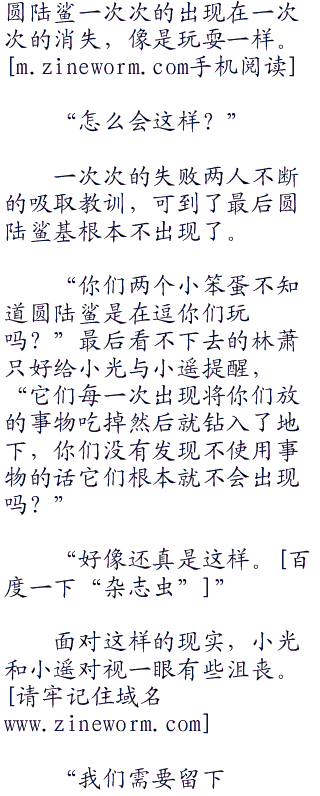 圆陆鲨一次次的出现在一次
次的消失，像是玩耍一样。
[m.zineworm.com手机阅读]
“怎么会这样？”
一次次的失败两人不断
的吸取教训，可到了最后圆
陆鲨基根本不出现了。
“你们两个小笨蛋不知
道圆陆鲨是在逗你们玩
吗？”最后看不下去的林萧
只好给小光与小遥提醒，
“它们每一次出现将你们放
的事物吃掉然后就钻入了地
下，你们没有发现不使用事
物的话它们根本就不会出现
吗？”
“好像还真是这样。[百
度一下“杂志虫”]”
面对这样的现实，小光
和小遥对视一眼有些沮丧。
[请牢记住域名
www.zineworm.com]
“我们需要留下